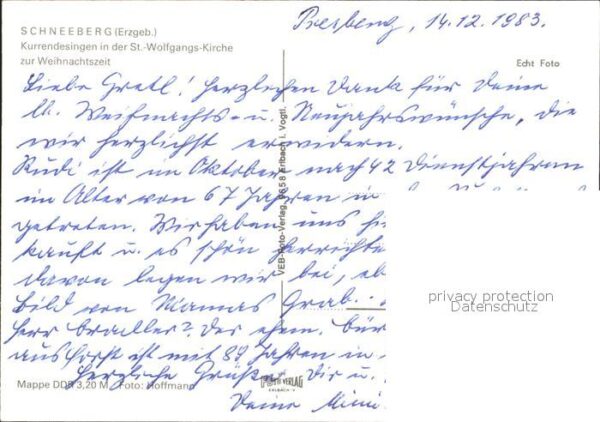 SCHNEEBERG (Erzgeb.)
Kurrendesingen in der St.-Wolfgangs-Kirche
zur Weihnachtszeit
Echt Foto
Presberg, 14.12.1983.
Liebe Gretl! Herzlichen Dank für Deine
lb. Weihnachts- u. Neujahrswünsche, die
wir herzlichst erwidern.
Rudi ist im Oktober nach 42 Dienstjahren
im Alter von 67 Jahren in
getreten. Wir haben uns
kauft u. es schön herrichte
davon legen wir bei,
Bild von Mamas Grab.
Herr Bradler? Der ehem.
ist mit 89 Jahren in
Herzliche Grüße Dir u.
Deine Mimi
VEB-Foto-Verlag, 9658 Erlbach i. Vogtl.
privacy protection
Datenschutz
Mappe DDR 3,20 M Foto: Hoffmann
FOTO VERLAG
ERLBACH V